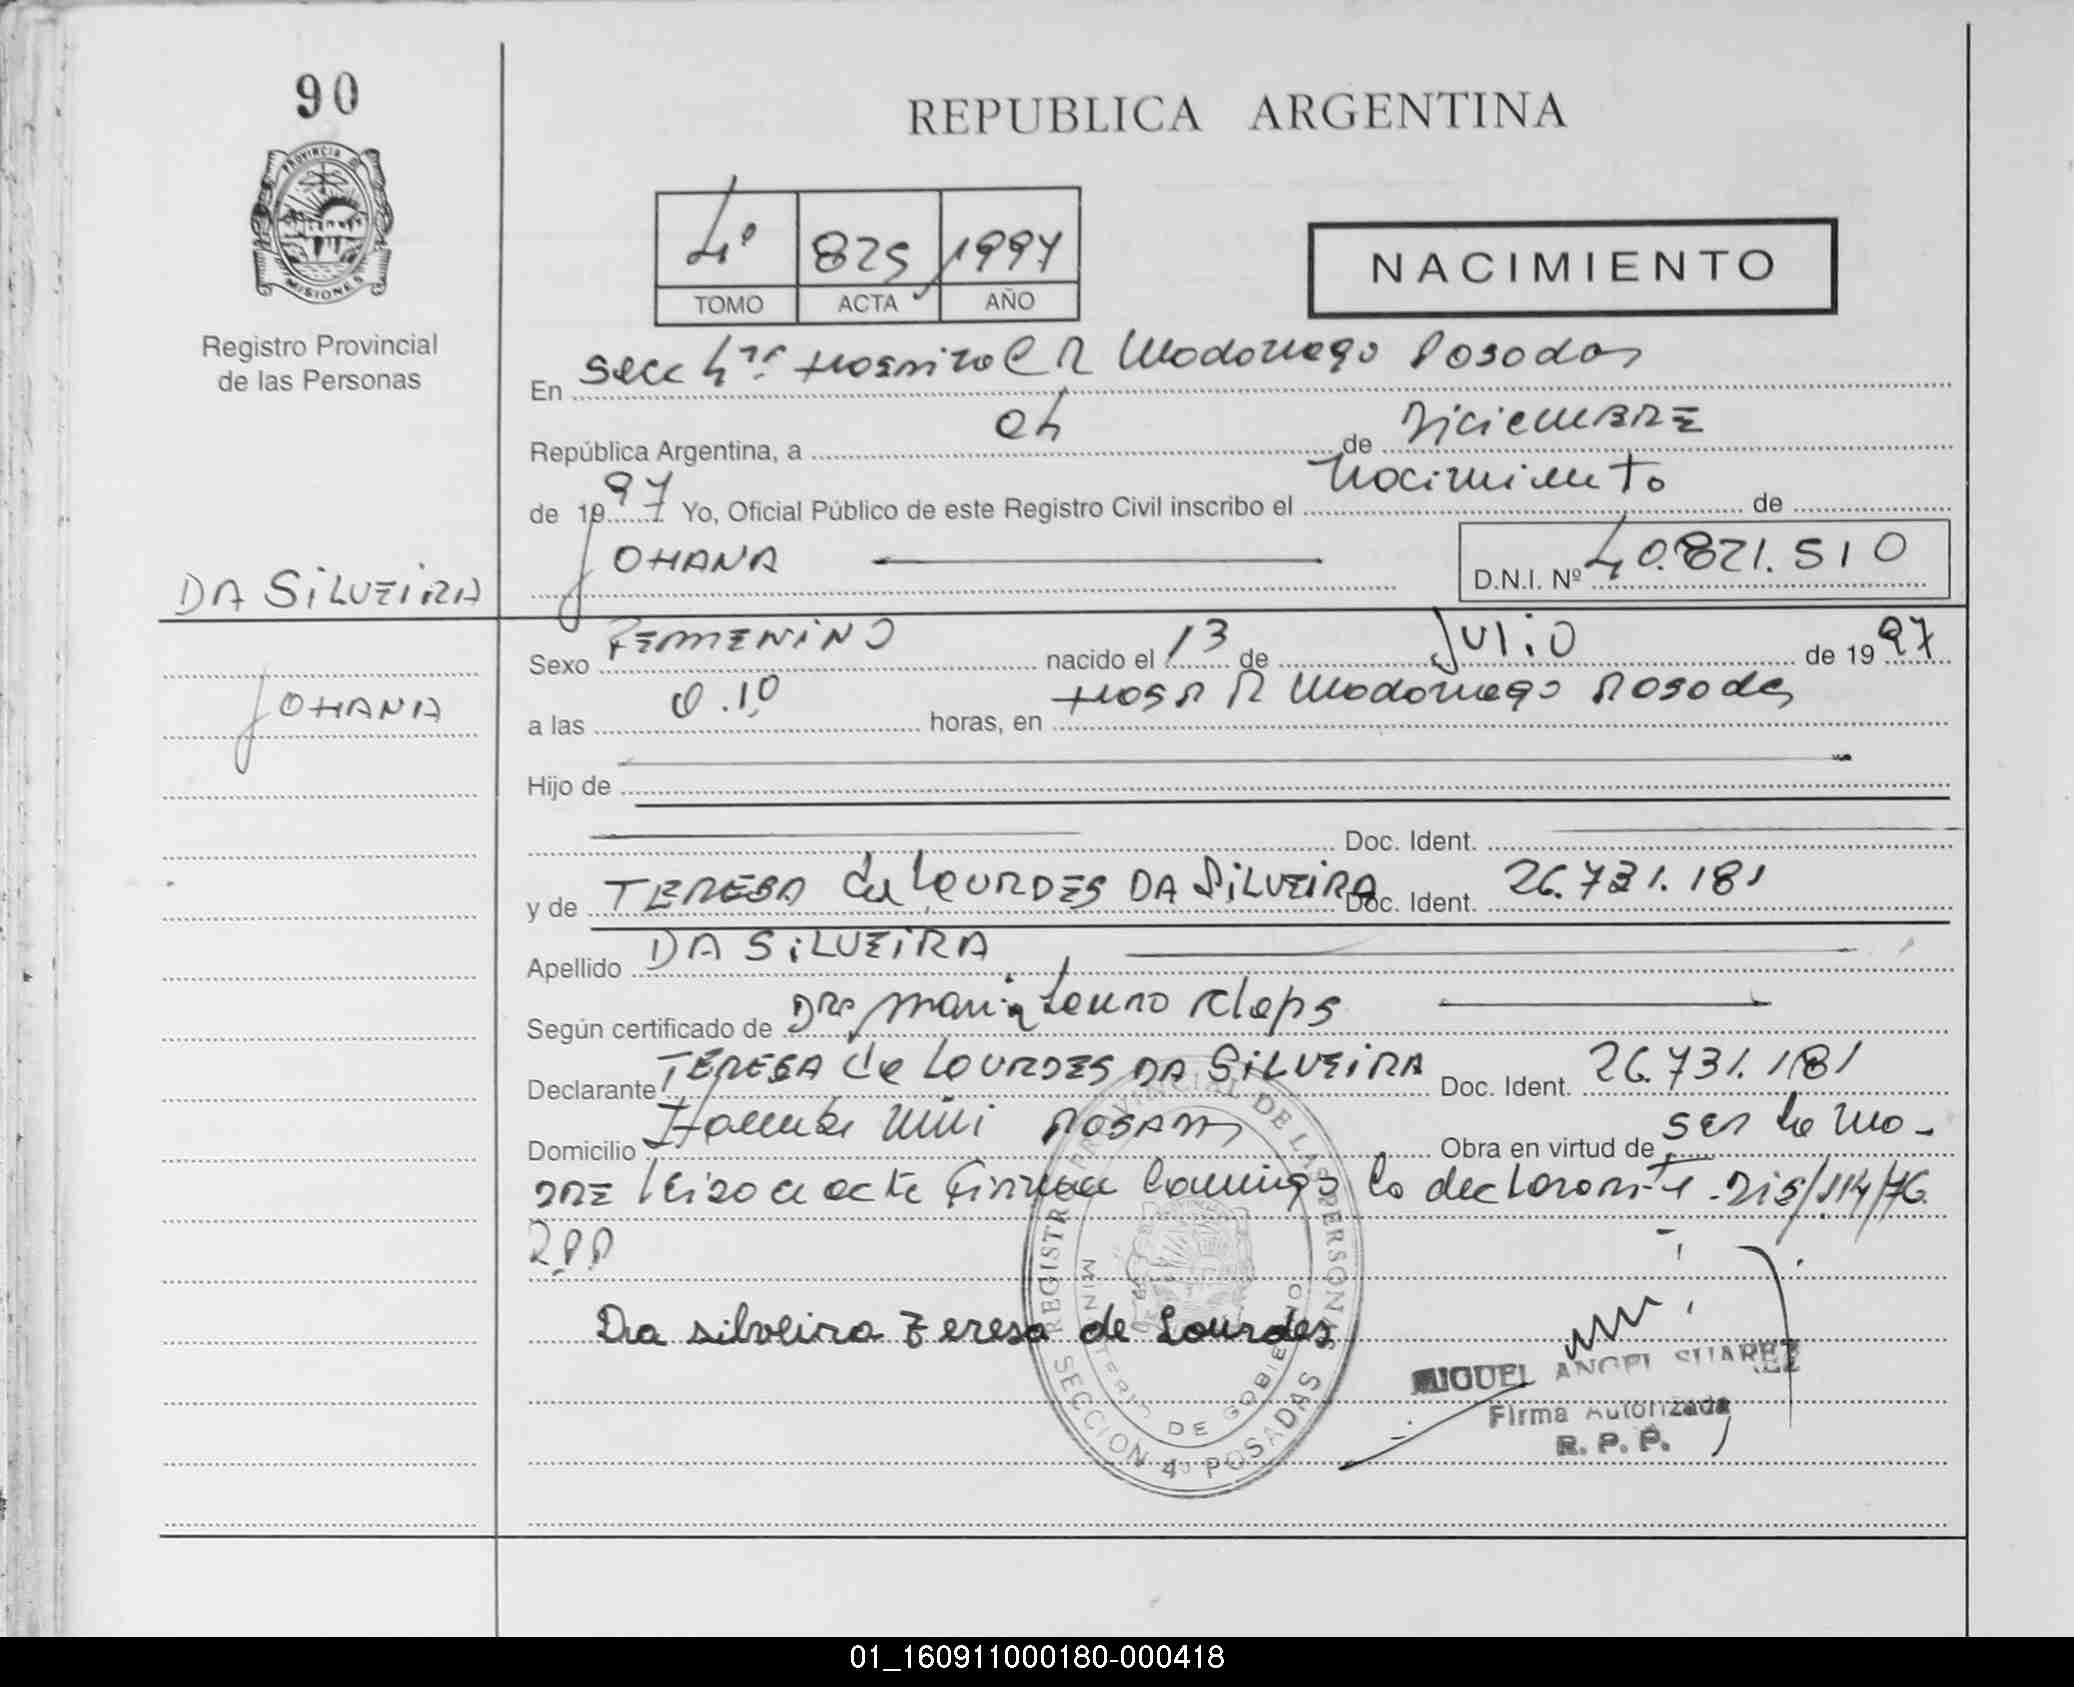 90
PROVINCIA DE
MISIONES
Registro Provincial
de las Personas
DA SILVEIRA
JOHANA
REPUBLICA ARGENTINA
4º 825 1997
TOMO ACTA AÑO
NACIMIENTO
En Secc 4ta Hospital R Madariaga Posadas
República Argentina, a 04 de DICIEMBRE
de 1997 Yo, Oficial Público de este Registro Civil inscribo el Nacimiento de
JOHANA
D.N.I. Nº 40.821.510
Sexo FEMENINO nacido el 13 de JULIO de 1997
a las 0.10 horas, en Hosp R Madariaga Posadas
Hijo de
Doc. Ident.
y de TERESA de LOURDES DA SILVEIRA Doc. Ident. 26.731.181
Apellido DA SILVEIRA
Según certificado de Dra Maria Laura
Declarante TERESA de LOURDES DA SILVEIRA Doc. Ident. 26.731.181
Domicilio Posadas Obra en virtud de ser la ma-
dre el acta firman conmigo la declarante. Dis/114/76
RPP
Da silveira Teresa de Lourdes
REGISTRO PROVINCIAL DE LAS PERSONAS
MINISTERIO DE GOBIERNO
SECCION 4º POSADAS
MIGUEL ANGEL SUAREZ
Firma Autorizada
R. P. P.
01_160911000180-000418